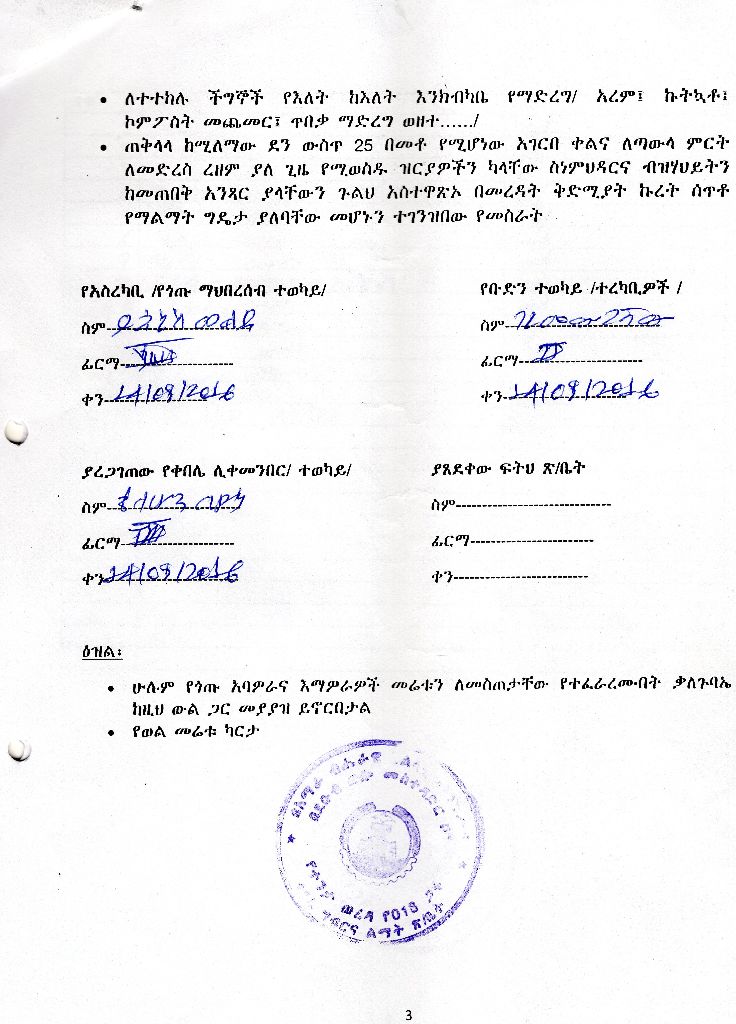 ለተተከሉ ችግኞች የእለት ከእለት እንክብካቤ የማድረግ/ አረም፤ ኩትኳቶ፤
ኮምፖስት መጨመር፣ ጥበቃ ማድረግ ወዘተ……/
ጠቅላላ ከሚለማው ደን ውስጥ 25 በመቶ የሚሆነው አገርበ ቀልና ለጣውላ ምርት
ለመድረስ ረዘም ያለ ጊዜ የሚወስዱ ዝርያዎችን ካላቸው ስነምህዳርና ብዝሃህይትን
ከመጠበቅ አንጻር ያላቸውን ጉልህ አስተዋጽኦ በመረዳት ቅድሚያት ኩረት ሰጥቶ
የማልማት ግዴታ ያለባቸው መሆኑን ተገንዝበው የመስራት
የአስረካቢ /የጎጡ ማህበረሰብ ተወካይ/
ስም
ፊርማ
ቀን 14/09/2016
የቡድን ተወካይ /ተረካቢዎች /
ስም
ፊርማ
ቀን 14/09/2016
ያረጋገጠው የቀበሌ ሊቀመንበር/ ተወካይ/
ስም
ፊርማ
ቀን 14/09/2016
ያጸደቀው ፍትህ ጽ/ቤት
ስም------------------------------
ፊርማ------------------------
ቀን--------------------------
ዕዝል፡
ሁሉም የጎጡ አባዎራና እማዎራዎች መሬቱን ለመስጠታቸው የተፈራረሙበት ቃለጉባኤ
ከዚህ ውል ጋር መያያዝ ይኖርበታል
የወል መሬቱ ካርታ
3